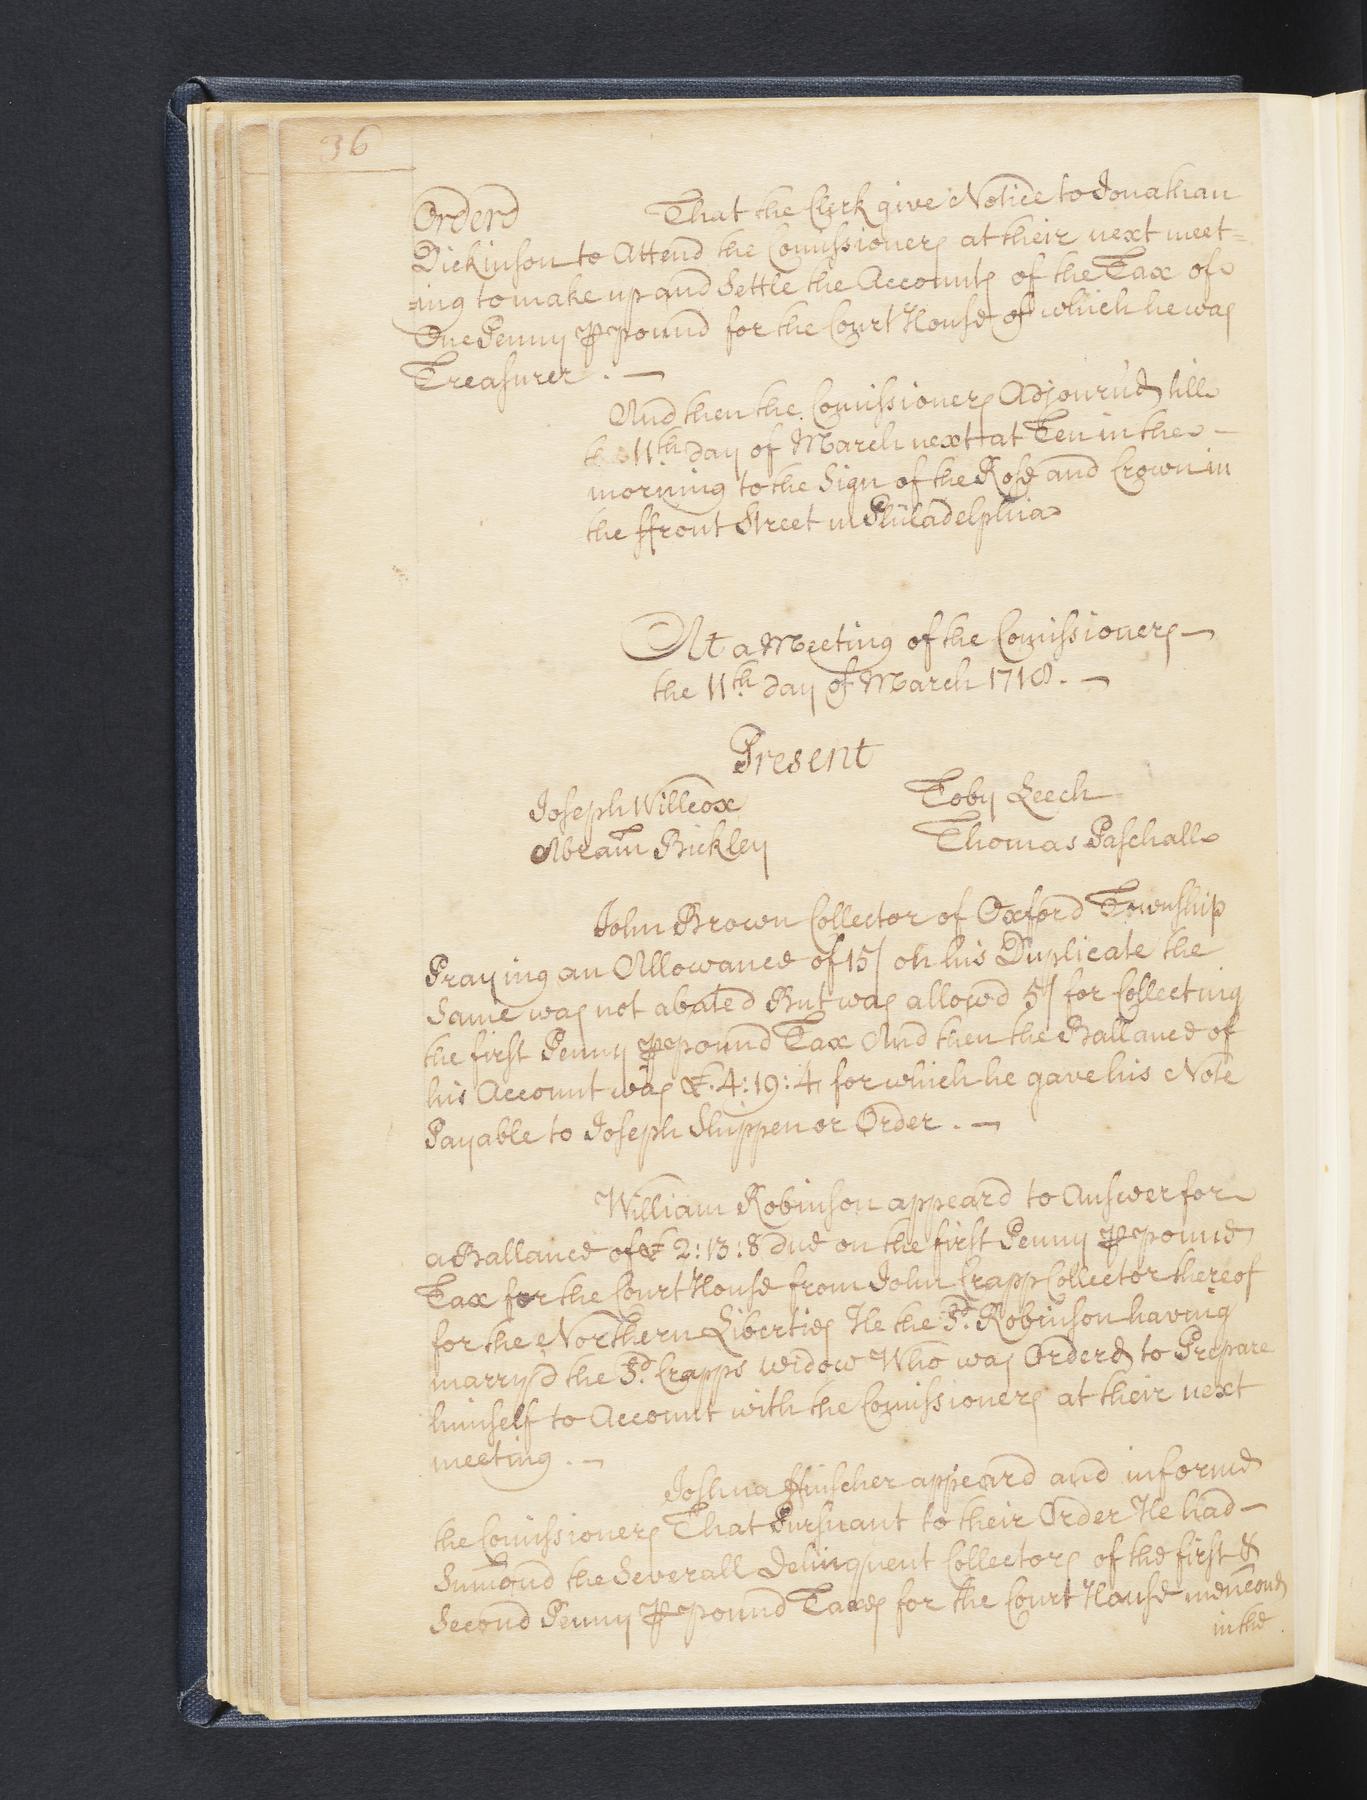 36
Orderd That the Clerk give Notice to Jonathan
Dickinson to Attend the Comissioners at their next meet=
=ing to make up and Settle the Accounts of the Tax of
One Penny ⅌ pound for the Court House of which he was
Treasurer . —
And then the Comissioners Adjourn'd till
the 11th day of March next at Ten in the -
morning to the Sign of the Rose and Crown in
the ffront Street in Philadelphia
At a Meeting of the Comissioners —
the 11th day of March 1718. —
Present
Joseph Willcox Toby Leech
Abram Bickley Thomas Paschall
John Brown Collector of Oxford Township
Praying an Allowance of 15/ on his Duplicate the
Same was not abated But was allowd 5/ for Collecting
the first Penny ⅌ pound Tax And then the Ballance of
his Account was £.4:19:4 for which he gave his Note
Payable to Joseph Shippen or Order . —
William Robinson appeard to Answer for
a Ballance of £ 2:13:8 due on the first Penny ⅌ pound
Tax for the Court House from John Crapp Collector thereof
for the Northern Liberties He the Sd. Robinson having
marry'd the Sd. Crapps widow Who was Orderd to Prepare
himself to Account with the Comissioners at their next
meeting . —
Joshua ffincher appeard and informd
the Comissioners That Pursuant to their Order He had —
Sumond the Severall Delinquent Collectors of the first &
Second Penny ⅌ pound Taxes for the Court House mencond
in the